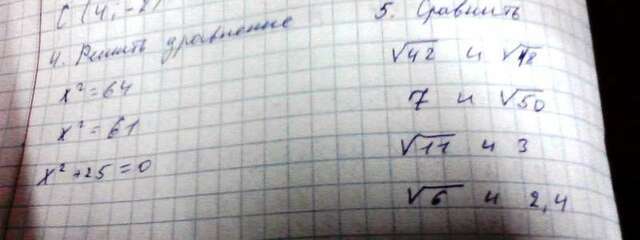 C (4; -2)
4. Решить уравнение
x² = 64
x² = 61
x² + 25 = 0
5. Сравнить
√42 и √48
7 и √50
√11 и 3
√6 и 2,4